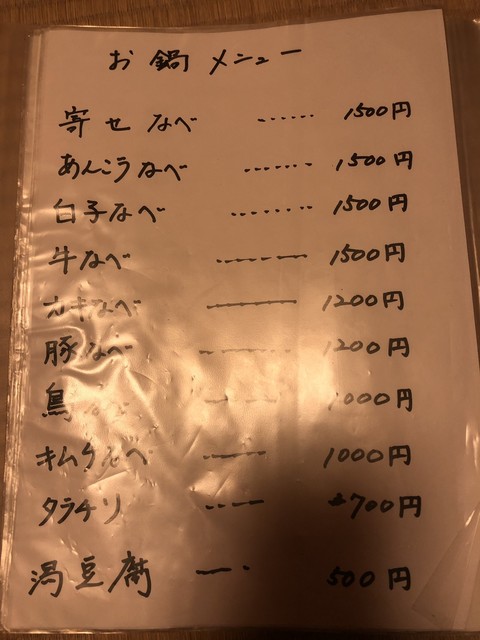 お鍋メニュー
寄せなべ ...... 1500円
あんこうなべ ...... 1500円
白子なべ ...... 1500円
牛なべ ------ 1500円
カキなべ ------ 1200円
豚なべ ------ 1200円
鳥 ---- 1000円
キムチなべ ---- 1000円
タラチリ ---- 700円
湯豆腐 --- 500円